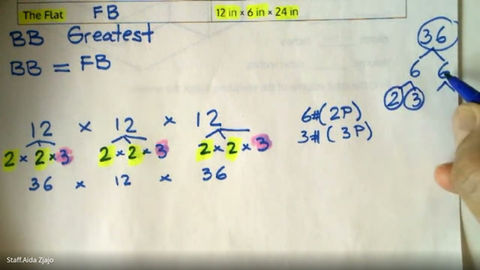 The Flat FB 12 in x 6 in x 24 in
BB Greatest
BB = FB
36
6 6
2 3
12 x 12 x 12
2 x 2 x 3 2 x 2 x 3 2 x 2 x 3
36 x 12 x 36
6#(2P)
3#(3P)
Staff.Aida Zjajo